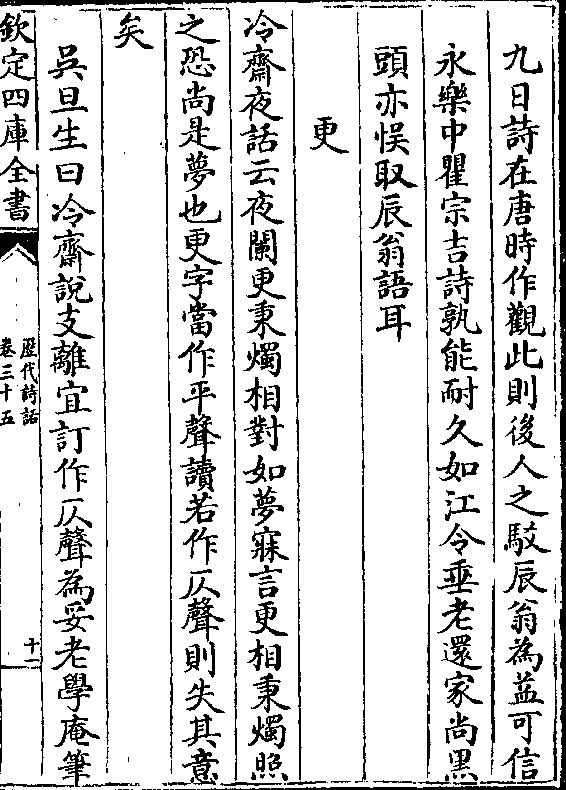 九日詩在唐時作觀此則後人之駁辰翁為益可信
永樂中瞿宗吉詩孰能耐久如江令垂老還家尚黑
頭亦悮取辰翁語耳
更
冷齋夜話云夜闌更秉燭相對如夢寐言更相秉燭照
之恐尚是夢也更字當作平聲讀若作仄聲則失其意
矣
吳旦生曰冷齋說支離宜訂作仄聲為妥老學庵筆
欽定四庫全書
歷代詩話
卷三十五
十一